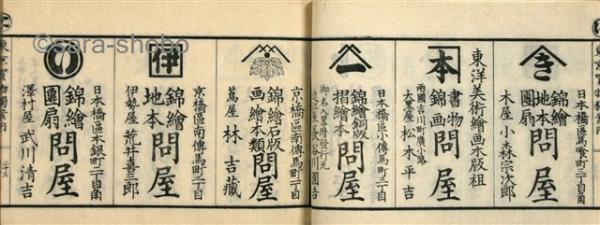 き
錦繪
地本
團扇
問屋
日本橋區馬喰町二丁目
木屋 小森宗次郎
東洋美術繪画本版祖
本
書物
錦画
問屋
兩國吉川町廣小路
大黒屋 松木平吉
一
錦繪銅版
摺繪本
問屋
日本橋區小傳馬町
長谷川園吉
錦繪石版
画繪本類
問屋
京橋區南傳馬町一丁目
蔦屋 林吉藏
伊
錦繪
地本
問屋
京橋區南傳馬町二丁目
伊勢屋 荒井喜三郎
い
錦繪
團扇
問屋
日本橋區本銀町二丁目角
澤村屋 武川清吉
©sara-shobo